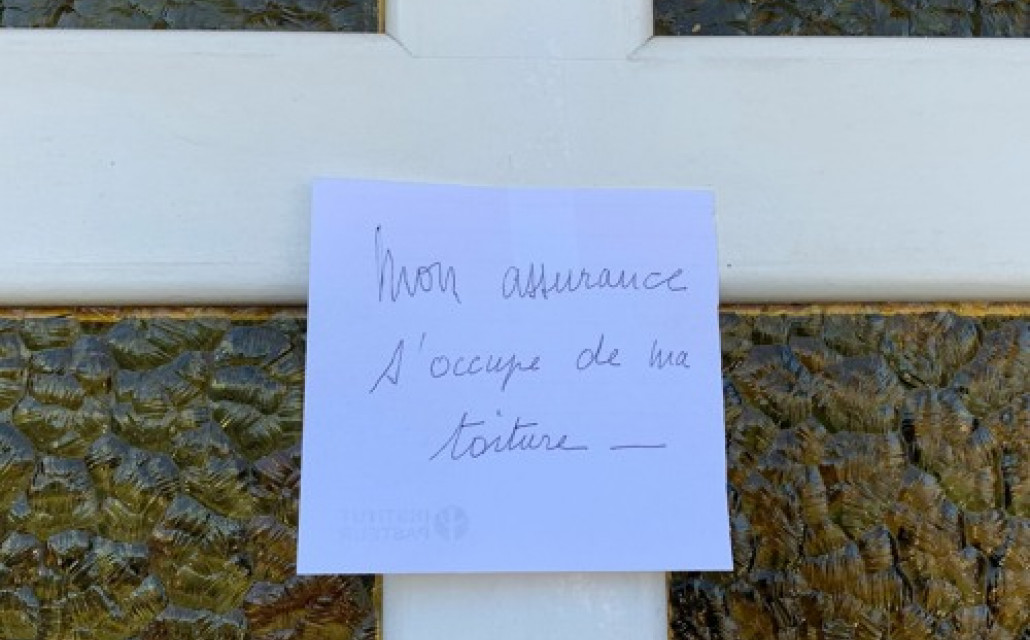 Mon assurance
s'occupe de ma
toiture —
INSTITUT
PASTEUR